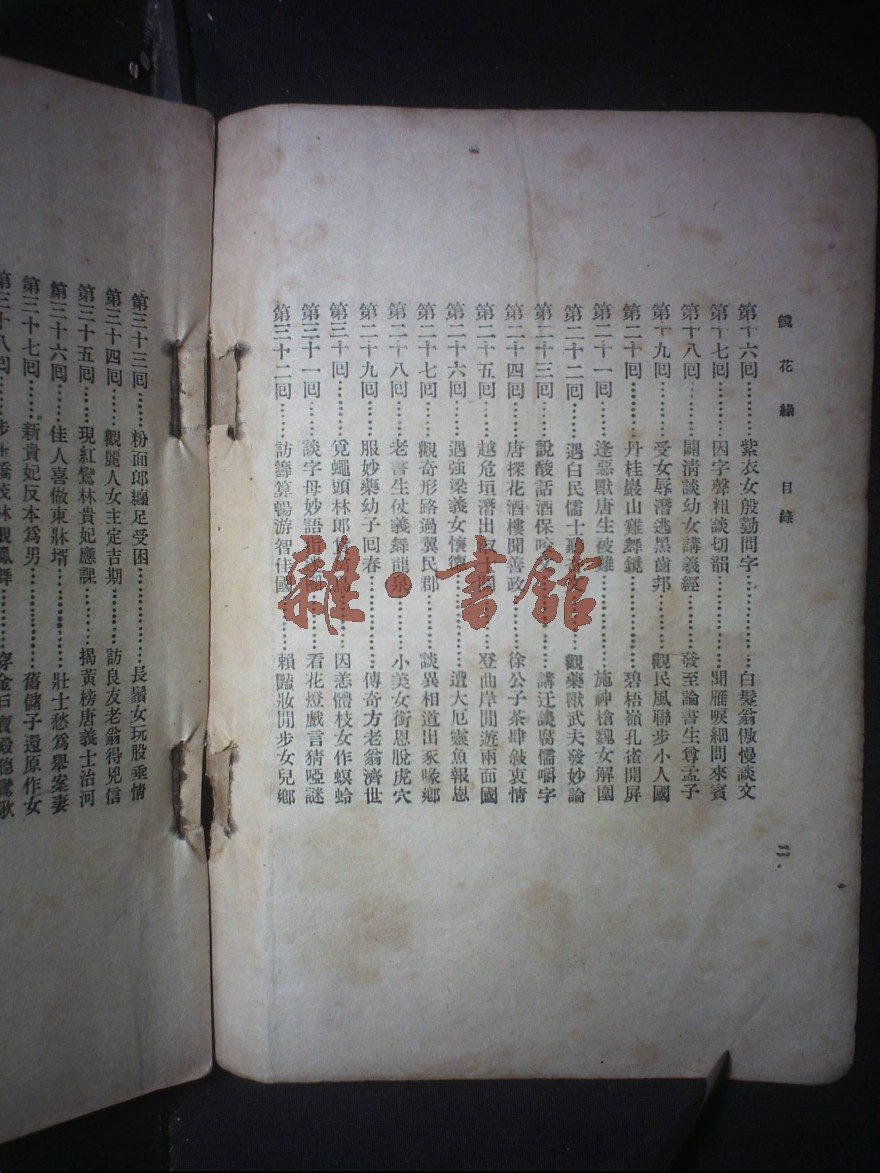 鏡花緣 目錄 二
第十六回……紫衣女殷勤問字……白髮翁傲慢談文
第十七回……因字聲粗談切韻……聞雁唳細問來賓
第十八回……闢清談幼女講義經……發至論書生尊孟子
第十九回……受女辱潛逃黑齒邦……觀民風聯步小人國
第二十回……丹桂巖山雞舞鏡……碧梧嶺孔雀開屏
第二十一回……逢惡獸唐生被難……施神槍魏女解圍
第二十二回……遇白民儒士聽……觀藥獸武夫發妙論
第二十三回……說酸話酒保咬……講迂談腐儒嚼字
第二十四回……唐探花酒樓聞善政……徐公子茶肆敍衷情
第二十五回……越危垣潛出……登曲岸閒遊兩面國
第二十六回……遇強梁義女懷……遭大厄靈魚報恩
第二十七回……觀奇形路過翼民郡……談異相道出豕喙鄉
第二十八回……老書生仗義舞龍泉……小美女銜恩脫虎穴
第二十九回……服妙藥幼子回春……傳奇方老翁濟世
第三十回……覓蠅頭林郎……因恙體枝女作螟蛉
第三十一回……談字母妙語……看花燈戲言猜啞謎
第三十二回……訪籌算暢游智佳國……賴豔妝閒步女兒鄉
第三十三回……粉面郎纏足受困……長鬚女玩股垂情
第三十四回……觀麗人女主定吉期……訪良友老翁得兇信
第三十五回……現紅鸞林貴妃應課……揭黃榜唐義士治河
第三十六回……佳人喜做東牀壻……壯士愁爲舉案妻
第三十七回……新貴妃反本爲男……舊儲子還原作女
第三十八回……步玉橋茂林觀鳳舞……穿金戶寶殿聽鸞歌
雜·書館